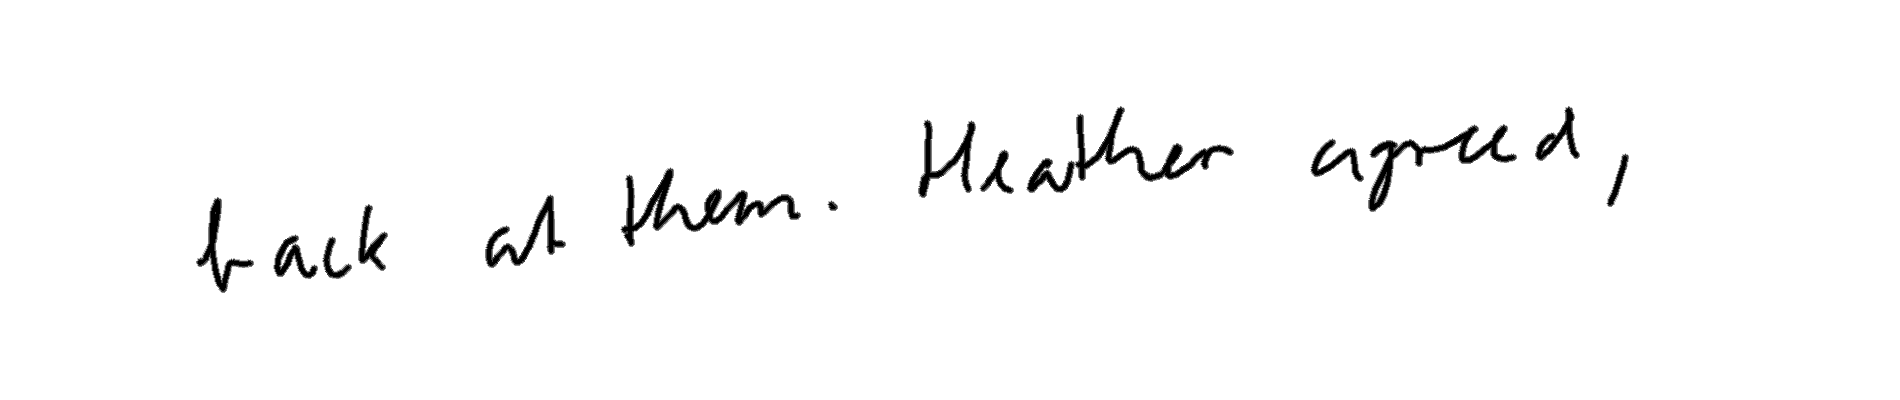 back at them. Heather agreed,